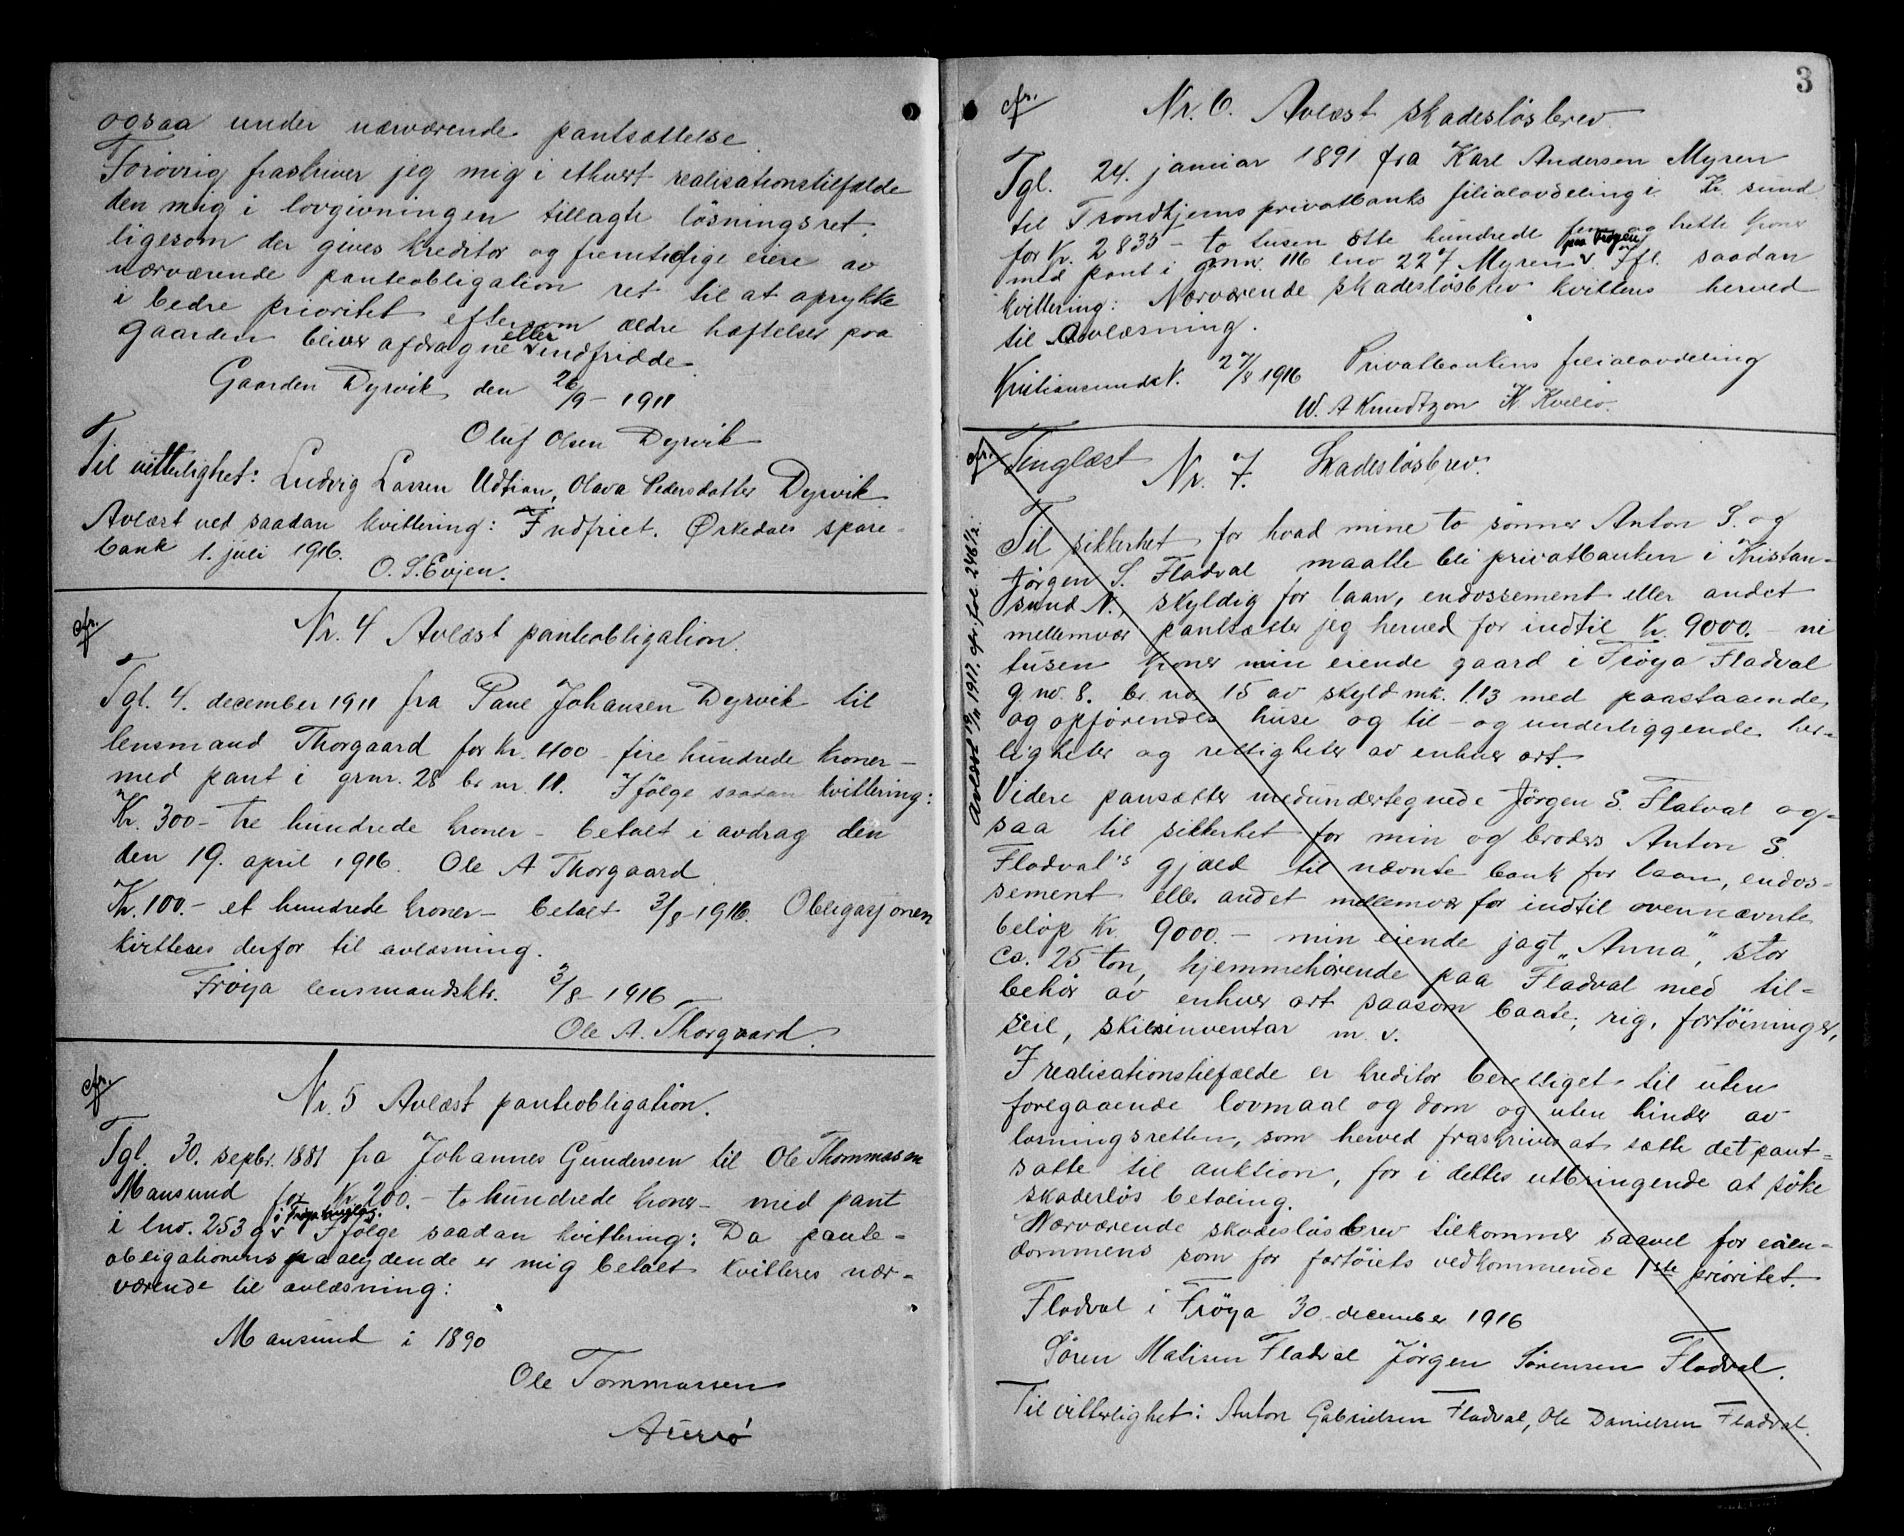 ogsaa under nærværende pantsættelse.
Forøvrig fraskriver jeg mig i ethvert realisationstilfælde
den mig i lovgivningen tillagte løsningsret.
ligesom der gives kreditor og fremtidige eiere av
nærværende panteobligation ret til at oprykke
i bedre prioritet eftersom ældre hæftelser paa
gaarden bliver afdragne eller indfriede.
Gaarden Dyrvik den 26/9 - 1911
Oluf Olsen Dyrvik
Til vitterlighet: Ludvig Larsen Udtian, Olava Pedersdatter Dyrvik
Avlæst ved saadan kvittering: Indfriet. Ørkedals spare-
bank 1. juli 1916.
O. S. Evjen.
cfr.
Nr. 4 Avlæst panteobligation.
Tgl. 4. december 1911 fra Paul Johansen Dyrvik til
lensmand Thorgaard for kr. 400 - fire hundrede kroner -
med pant i grnr. 28 br nr. 11. Ifølge saadan kvittering:
Kr. 300 - tre hundrede kroner - betalt i avdrag den
den 19. april 1916. Ole A Thorgaard
Kr. 100. - et hundrede kroner - betalt 3/8 - 1916. Obligasjonen
kvitteres derfor til avlæsning.
Frøya lensmandsktr. 3/8 - 1916
Ole A. Thorgaard.
cfr.
Nr. 5 Avlæst panteobligation.
Tgl. 30. septbr. 1881 fra Johannes Gundersen til Ole Thommasen
Mausund for Kr 200. - to hundrede kroner - med pant
i lno. 253 g i Frøya tinglag. Ifølge saadan kvittering: Da pante-
obligationens paalydende er mig betalt kvitteres nær-
værende til avlæsning:
Mausund i 1890
Ole Tommassen
3
cfr.
Nr. 6. Avlæst skadesløsbrev
Tgl. 24. januar 1891 fra Karl Andersen Myren
til Trondhjems privatbanks filialavdeling i Kr. sund
for Kr. 2835 - to tusen otte hundrede fem og trette kroner
med pant i grnr. 116 lno 227 Myren paa Frøyen Ifl. saadan
kvittering: Nærværende skadesløsbrev kvitteres herved
til avlæsning.
Kristiansund N. 27/8 1916 Privatbankens filialavdeling
W. A Knudtzon K
cfr. Tinglæst Nr. 7. Skadesløsbrev.
Avlæst 9/11 1917. cfr. fol. 246 1/2.
Til sikkerhet for hvad mine to sønner Anton S. og
Jørgen S. Fladval maatte bli privatbanken i Kristian-
sund N., skyldig for laan, endossement eller andet
mellemvær pantsætter jeg herved for indtil Kr. 9000. - ni
tusen kroner min eiende gaard i Frøya Fladval
g no. 8. br. no. 15 av skyld mk. 1.13 med paastaaende
og opførendes huse og til- og underliggende her-
ligheter og rettigheter av enhver art.
Videre pansætter medundertegnede Jørgen S. Flatval og-
saa til sikkerhet for min og broders Anton S.
Fladval's gjæld til nævnte bank for laan, endos-
sement eller andet mellemvær for indtil ovennævnte
beløp Kr. 9000. - min eiende jagt „Anna", stor
ca. 25 ton, hjemmehørende paa Fladval med til-
behør av enhver art saasom baate, rig, fortøininger,
seil, skibsinventar m. v.
I realisationstilfælde er kreditor berettiget til uten
foregaaende lovmaal og dom og uten hinder av
løsningsretten, som herved fraskrives at sætte det pant-
satte til auktion, for i dettes utbringende at søke
skadesløs betaling.
Nærværende skadesløsbrev tilkommer saavel for eien-
dommens som for fartøiets vedkommende 1ste prioritet.
Fladval i Frøya 30. december 1916
Søren Matisen Fladval Jørgen Sørensen Fladval.
Til vitterlighet: Anton Gabrielsen Fladval, Ole Danielsen Fladval.